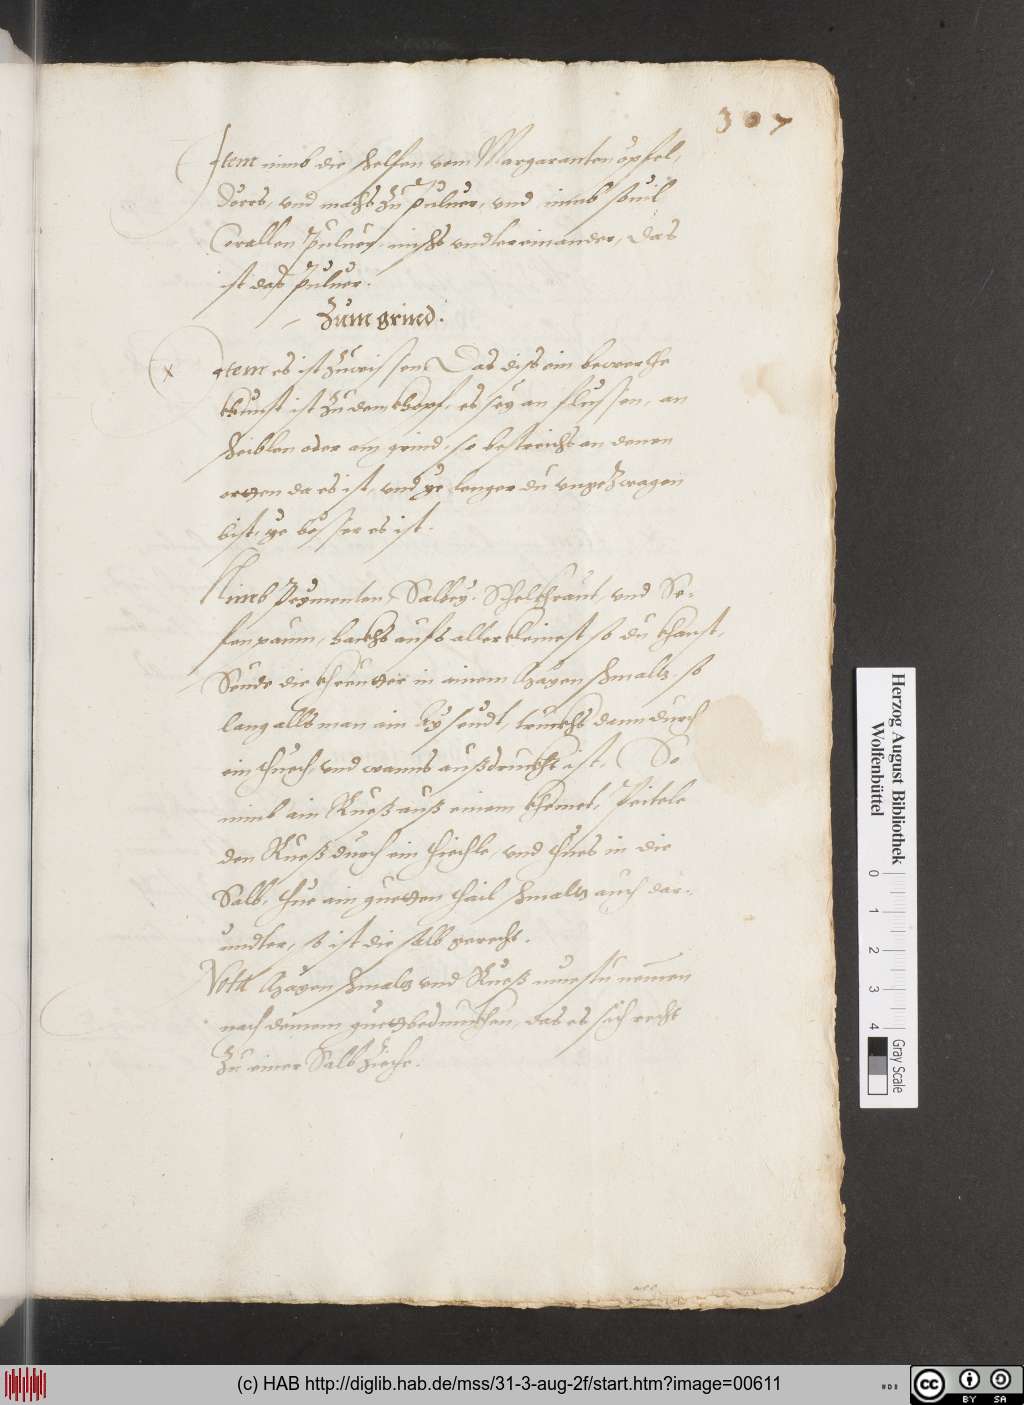 307
Item nimb die Schelfen vom Margarantenöpfel,
Derrs, und machs zu Puluer, und nimb souil
Corallen Puluer, mischs undtereinander, Das
ist das Puluer.
Zum grind.
x Item es ist zuwissen Das diss ein bewerthe
kunst ist zu dem khopf, es sey an flussen, an
Scheiblen oder am grind, so bestreichs an denen
orten da es ist, und ye lenger du ungezwagen
bist, ye besser es ist.
Nimb Peymenten, Salbey, Schelkhraut, und Se-
fenpaum, hackhs aufs allerkleinest so du khanst,
Seude die khreutter in ainem Hagenschmaltz, so
lang alls man ain Ay seudt, truckhs dann durch
ein thuech, und wanns außdruckht ist, So
nimb ain Rueß auß einem khemet, Peitele
den Rueß durch ein thiechle, und thues in die
Salb, thue ain guetten thail Schmaltz auch dar-
undter, so ist die salb gerecht.
Nota Hagenschmaltz und Rueß muestu nemen
nach deinem guettbedunckhen, das es sich recht
zu einer Salb zieche.
Herzog August Bibliothek
Wolfenbüttel
0 1 2 3 4
Gray Scale
(c) HAB http://diglib.hab.de/mss/31-3-aug-2f/start.htm?image=00611
cc BY SA